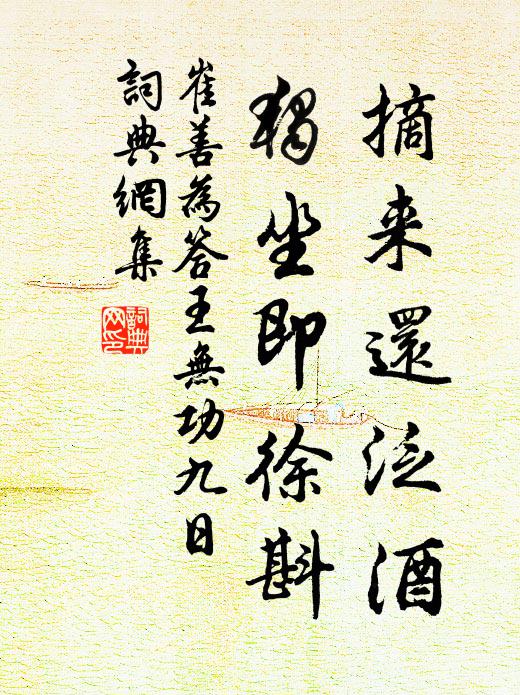 摘来還泛酒
獨坐即徐斟
崔善為答王無功九日
詞典網集
詞典网印